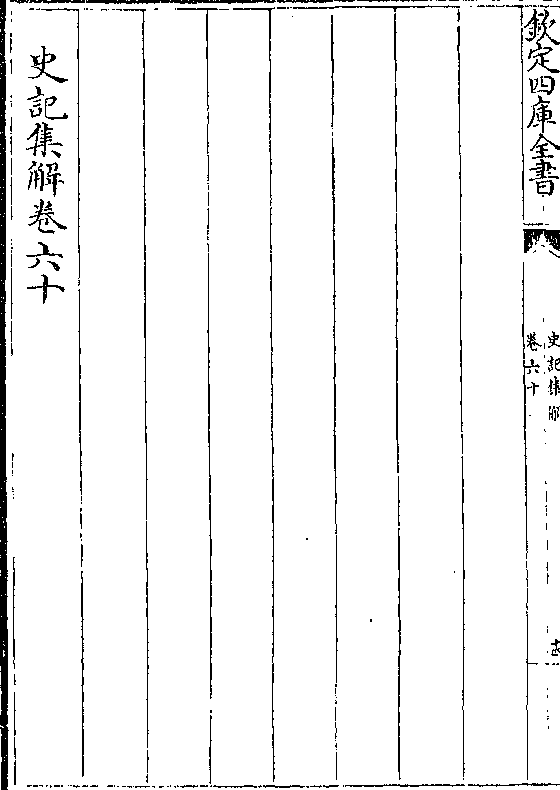 欽定四庫全書
史記集解
卷六十
史記集解卷六十